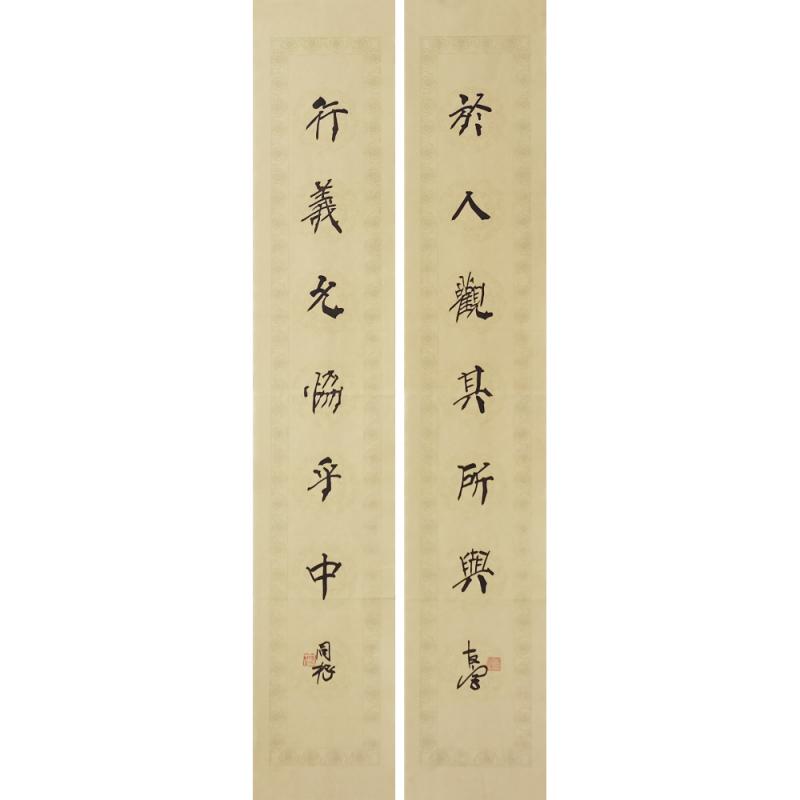 於人觀其所與
行義允協乎中